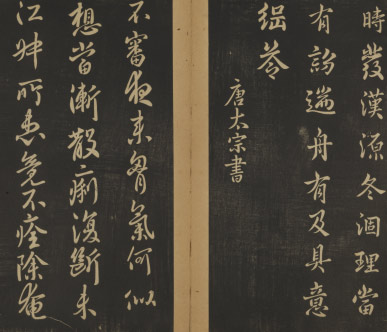 時發漢源冬涸理當
有遄舟有及具意
荅
唐太宗書
不審夜來胸氣何似
想當漸散痢復斷未
江叔所患竟不痊除奄